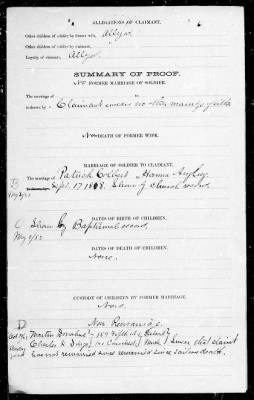 ALLEGATIONS OF CLAIMANT.
Other children of soldier by former wife, alleged.
Other children of soldier by claimant,
Loyalty of claimant, alleged.
SUMMARY OF PROOF.
No FORMER MARRIAGE OF SOLDIER.
The marriage of to
is shown by Claimant swears no other marriage of either
No DEATH OF FORMER WIFE.
MARRIAGE OF SOLDIER TO CLAIMANT.
The marriage of Patrick to Hanna
B Sept. 17 1868. Shown by church record.
May 2/82
DATES OF BIRTH OF CHILDREN.
C Shown by Baptismal record,
May 2/82
DATES OF DEATH OF CHILDREN.
None.
CUSTODY OF CHILDREN BY FORMER MARRIAGE.
None.
D Non Remarriage
Martin Donohue 189 Fifth st
Charles H. swear that claimt
has not remarried since sailors death.